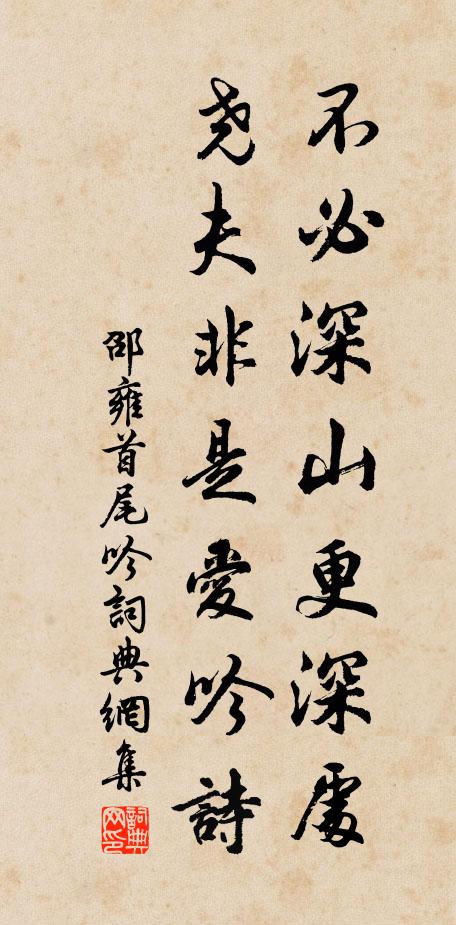 不必深山更深處
堯夫非是愛吟詩
邵雍首尾吟詞典網集
詞典網印